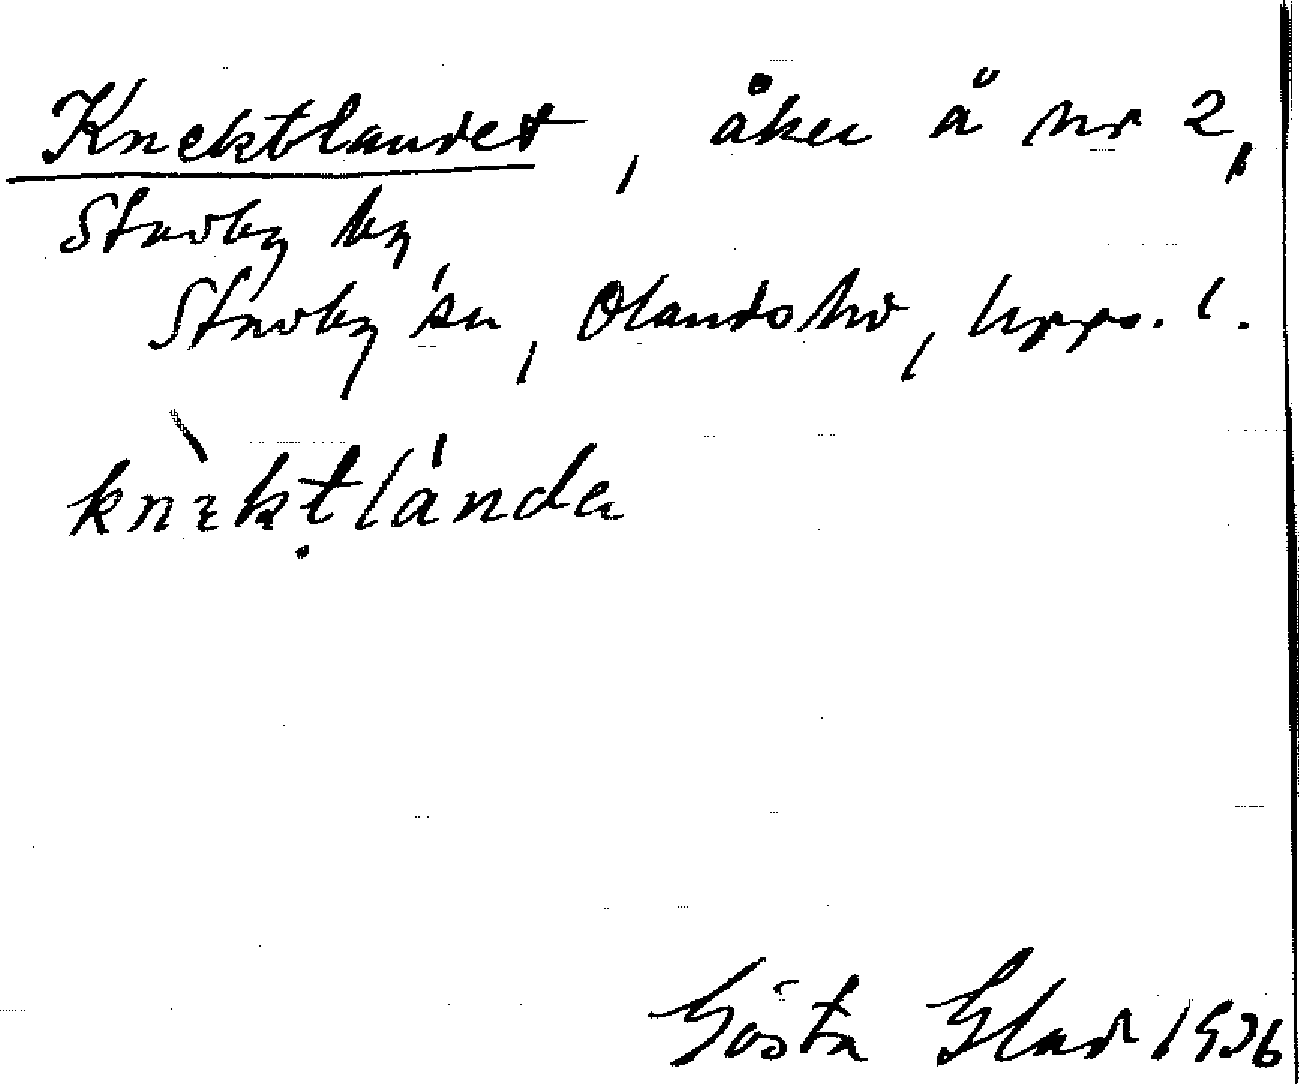 Knektlandet, åker å nr 2,
Stavby by
Stavby sn, Olands hd, Upps. l.
knὲktlánda
Gösta Glad 1936